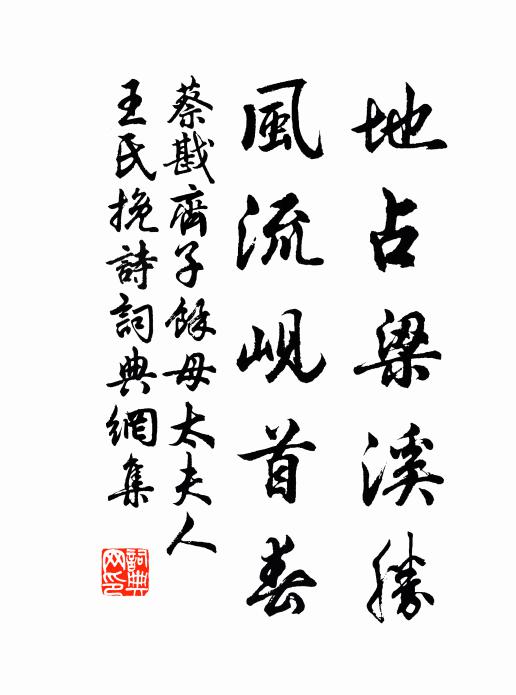 地占梁溪勝
風流峴首春
蔡戡齊子餘母太夫人
王氏挽詩詞典網集
詞典網印